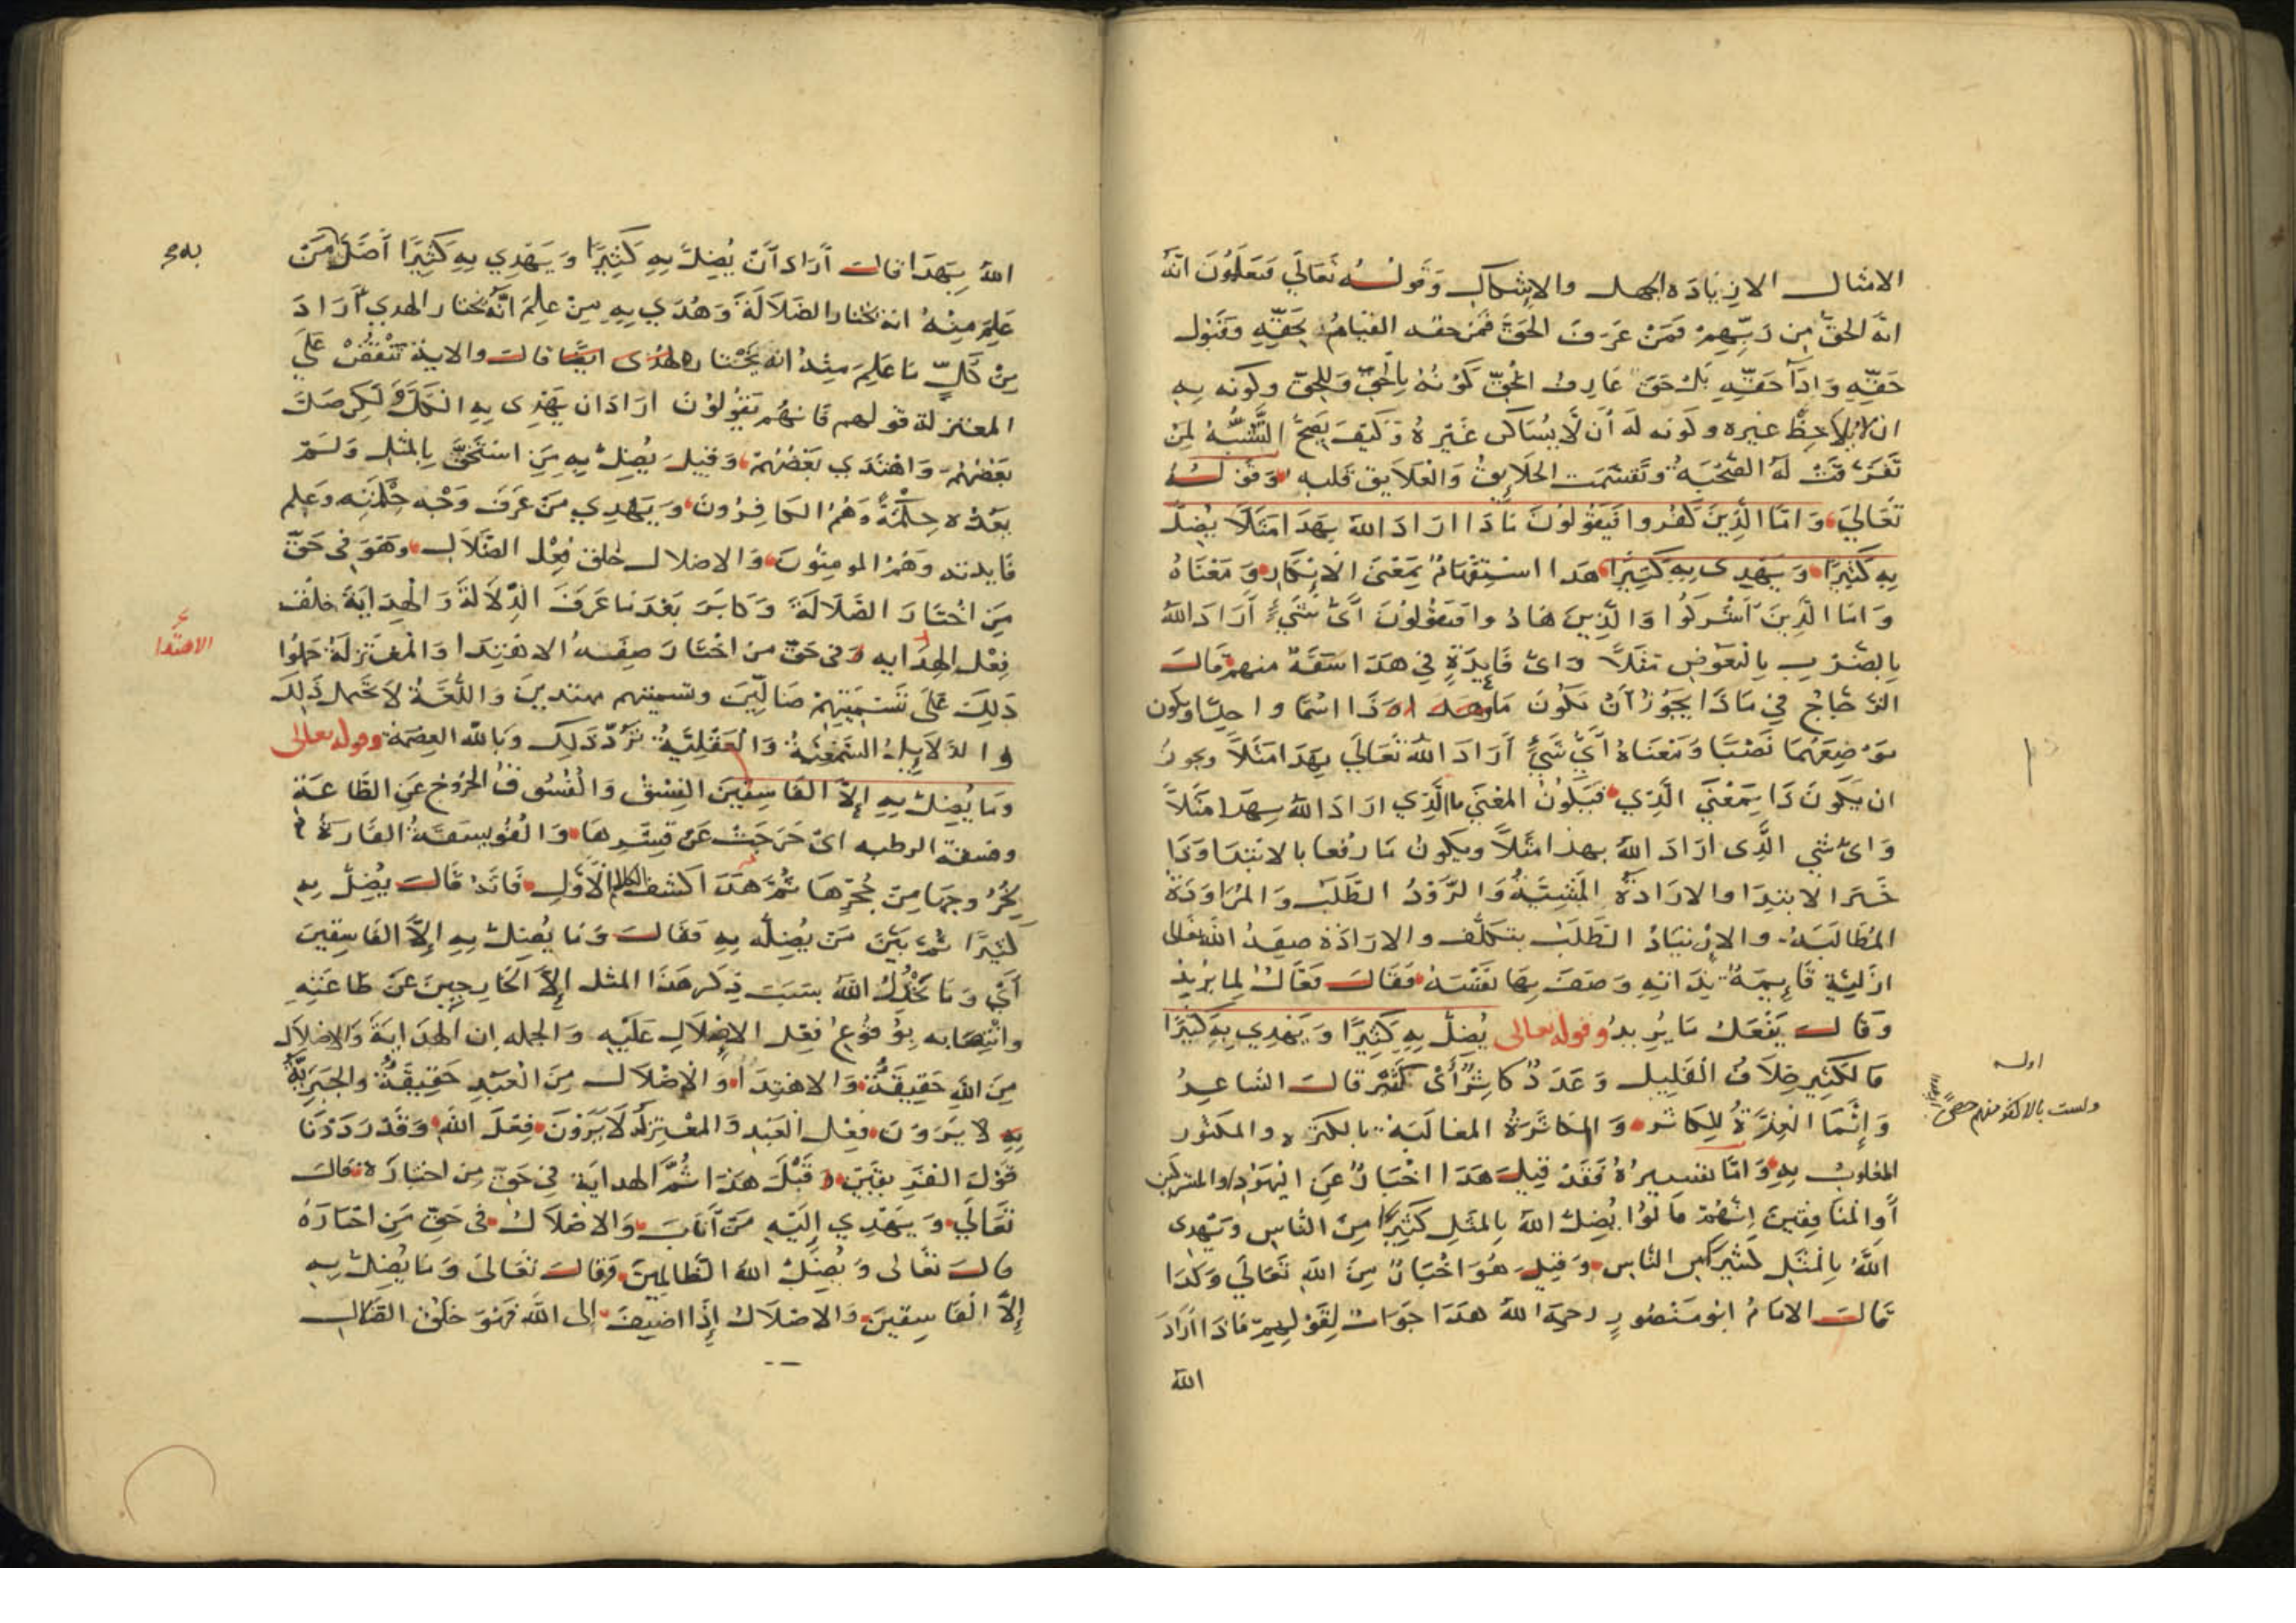 الامثال الا زيادة الجهل والاشكال وَقولُه تَعَالَى فَيَعْلَمُونَ انّهُ
انه الحقّ مِن رَبِّهِمْ فَمَنْ عَرَفَ الحَقَّ فَمِنْ حقه القيَامُ بِحَقّهِ وَقَبُول
حَقّهِ وَادَآ حَقّهِ بَلْ حَقّ عَارِف الحقّ كَوْنُهُ بِالحَقّ وَلِلحَقّ وكونه بِهِ
ان لا يُلاحِظَ غيره وكونه لَه أَن لَا يُسَاكن غَيْره وَكَيْفَ يَصِحّ التَّشَبُّهُ لِمَنْ
تَفَرّقَتْ لَهُ الصُّحْبَةُ وتَقَسَّمَت الخلَايِقُ وَالعَلَايق قلبه وَقولُه
تَعَالَى وَامّا الَّذِينَ كَفَرُوا فَيَقُولُونَ مَاذَا ارَادَ اللهُ بِهَذَا مَثَلًا يُضِلُّ
بِهِ كَثِيرًا وَيَهْدِى بِهِ كَثِيرًا هَذا اسْتِفْهَامٌ بِمَعْنَى الانْكَار وَمَعْنَاهُ
وَامّا الَّذِينَ اَشْرَكُوا وَالَّذِينَ هَادُوا فَيَقُولُونَ اَىُّ شَىْءٍ أَرَادَ اللهُ
بِالضَّرْبِ بِالبَعُوضِ مَثَلًا وَاىّ فَايِدَةٍ فِي هَذَا سَفَهٌ منهم قَالَ
الزّجّاجُ فِي مَاذَا يَجُوزُ أَنْ يَكُونَ مَا وذَا اسْمًا واحِدًا ويكون
مَوْضِعُهُمَا نَصْبًا وَمَعْنَاهُ اَيّ شَيْءٍ أَرَادَ اللهُ تَعَالَى بِهَذَا مَثَلًا ويجوزُ
ان يَكُونَ ذَا بِمَعْنَى الَّذِي فَيَكُونُ المعْنَى ما الَّذِي ارَادَ اللهُ بِهَذَا مَثَلًا
وَاىّ شي الَّذِى ارَادَ اللهُ بهذا مَثَلًا ويكونُ مَا رفعا بالابْتِدَا وَذَا
خَبَر الابتدا والارادَةُ المَشِيَّةُ وَالرَّوْدُ الطَّلَبُ وَالمُرَاوَدَةُ
المُطَالَبَةُ والارتيَادُ الطَّلَبُ بتكلّف والارَادَة صِفَةُ اللهِ تعَالى
ازليَّةٌ قَايِمَةٌ بِذَاتِهِ وَصَفَ بِهَا نَفْسَهُ فَقَالَ فَعَّالٌ لِما يُرِيدُ
وَقَالَ يَفْعَلُ مَا يُرِيدُ وقوله تعالى يُضِلُّ بِهِ كَثِيرًا وَيَهْدِي بِهِ كَثِيرًا
فَالكَثِير خِلَافُ القَلِيل وَعَدَدٌ كَاثِرٌ أَىْ كَثِيرٌ قَالَ الشَّاعِرُ
وَإِنَّمَا العِزَّةُ لِلكَاثر وَالمُكَاثَرَةُ المغالَبَةُ بالكثرة والمكثور
المغلوبُ بِهِ وَامَّا تفسيرهُ فَقَدْ قِيلَ هَذَا اخْبَارٌ عَنِ اليَهُودِ والمشركين
أَوِ المنَافِقِينَ اِنَّهُمْ قالُوا يُضِلُّ اللهُ بِالمَثَلِ كَثِيرًا مِنَ النَّاسِ وَيَهْدِى
اللهُ بِالمَثَلِ كثيرًا من النَّاسِ وَقِيلَ هُوَ اخْبَارٌ مِنَ اللهِ تَعَالَى وَكَذَا
قَالَ الامَامُ ابُو مَنْصُورٍ رحمه اللهُ هَذَا جَوَابٌ لِقَوْلِهِمْ مَاذَا أَرَادَ
الله
اوله
ولست بالاكثر منهم حصىً
اللهُ بِهَذَا قَالَ أَرَادَ أَنْ يُضِلَّ بِهِ كَثِيرًا وَيَهْدِي بِهِ كَثِيرًا أَضَلَّ مَنْ
عَلِمَ مِنْهُ انه يختار الضَلَالَةَ وَهُدَي بِهِ مَنْ عَلِمَ انَّهُ يختار الهدي أَرَادَ
مِنْ كُلٍّ مَا عَلِمَ مِنْهُ انه يَخْتَارُه قالت والاية تَنْقُضُ عَلَى
المعتزلة قولهم فَانهُم يَقُولُونَ ارَادَ ان يَهْدِى بِهِ الكُلَّ وَلَكِن ضَلَّ
بَعْضُهُمْ وَاهْتَدَي بَعْضُهُمْ وَقِيلَ يُضِلُّ بِهِ مَنِ اسْتَخَفَّ بِالمَثَلِ وَلَمْ
يَعُدّه حِكْمَةً وَهُمُ الكَافِرُونَ وَيَهْدِي مَنْ عَرَفَ وَجْه حِكْمَتِه وَعَلِم
فَايدته وَهُمُ المومِنُونَ وَالاضلال خلقُ فِعْل الضَّلَالِ وَهُوَ فِى حَقِّ
مَنِ اخْتَارَ الضَّلَالَةَ وَكَابَرَ بَعْدَ مَا عَرَفَ الدِّلَالَةَ وَالهِدَايَةَ خلقُ
فِعْل الهِدايه وَفى حَقّ من اخْتَارَ صِفَةُ الاهْتِدَا وَالمُعْتَزِلَةُ حَمَلُوا
ذَلِكَ عَلَى تَسْمِيَتِهِمْ ضَالِّينَ وتسميتهم مهتدين وَاللُّغَةُ لَا تحتمل ذَلِكَ
والدَّلَايِلُ السَّمْعِيّةُ وَالْعَقْلِيّةُ تَرُدّ ذَلِك وَبِاللهِ العِصْمَة وقوله تعالى
ومَا يُضِلُّ بِهِ إِلَّا الفَاسِقِينَ الفِسْقُ وَالْفُسُوقُ الخُرُوجُ عَنِ الطَّاعَةِ
وفسقت الرطبه اىْ خَرَجَتْ عَنْ قِشْرِهَا وَالْفُوَيْسِقَةُ الفَارَةُ
لِخُرُوجِهَا مِنْ جُحْرِهَا ثُمَّ هَذَا كشف الكلام الْأَوَّلِ فَانَّهُ قَالَ يُضِلّ بِهِ
كَثِيرًا ثُمَّ بَيَّنَ مَنْ يُضِلُّه بِهِ فَقَالَ وَمَا يُضِلُّ بِهِ إِلَّا الفَاسِقِينَ
أَيْ وَمَا يَخْذُلُ اللهُ بسَبَبِ ذِكْر هَذَا المثل إِلَّا الخَارِجِينَ عَنْ طَاعَتِهِ
وانْتِصَابه بِوُقُوعِ فِعْلِ الاضْلَالِ عَلَيْهِ وَالجمله ان الهِدَايَةَ وَالاضْلَالَ
مِنَ اللهِ حَقِيقَةٌ وَالاهْتِدَاُ وَالْاِضْلَالَ مِنَ الْعَبْدِ حَقِيقَةٌ والجَبْرِيَّةُ
لا يَرَوْنَ فِعْلَ العَبْدِ وَالمُعْتَزِلَةُ لَا يَرَوْنَ فِعْلَ اللهِ وَقَدْ رَدَدْنَا
قَوْلَ الفَرِيقَيْنِ قَبْلَ هَذَا ثُمَّ الهِدَايَة فِي حَقِّ مِن اختَارَهُ قَالَ
تَعَالَى وَيَهْدِي إِلَيْهِ مَنْ أَنَابَ وَالاضْلَالُ فى حَقّ مَنِ اخْتَارَهُ
قَالَ تَعَالى وَيُضِلُّ اللهُ الظَّالِمِينَ وَقَالَ تَعَالَىٰ وَمَا يُضِلُّ بِهِ
إِلَّا الْفَاسِقِينَ وَالاضْلَالُ إِذَا اضِيفَ إلى اللهِ فَهْوَ خَلْقُ الضَّلَالِ
الاهتدا